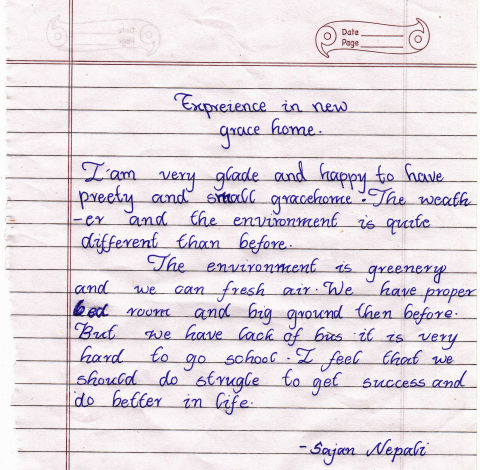 Date
Page
Expreience in new
grace home.
I'am very glade and happy to have
preety and small gracehome. The weath
-er and the environment is quite
different than before.
The environment is greenery
and we can fresh air. We have proper
bed room and big ground then before.
But we have lack of bus it is very
hard to go school. I feel that we
should do strugle to get success and
do better in life.
- Sajan Nepali